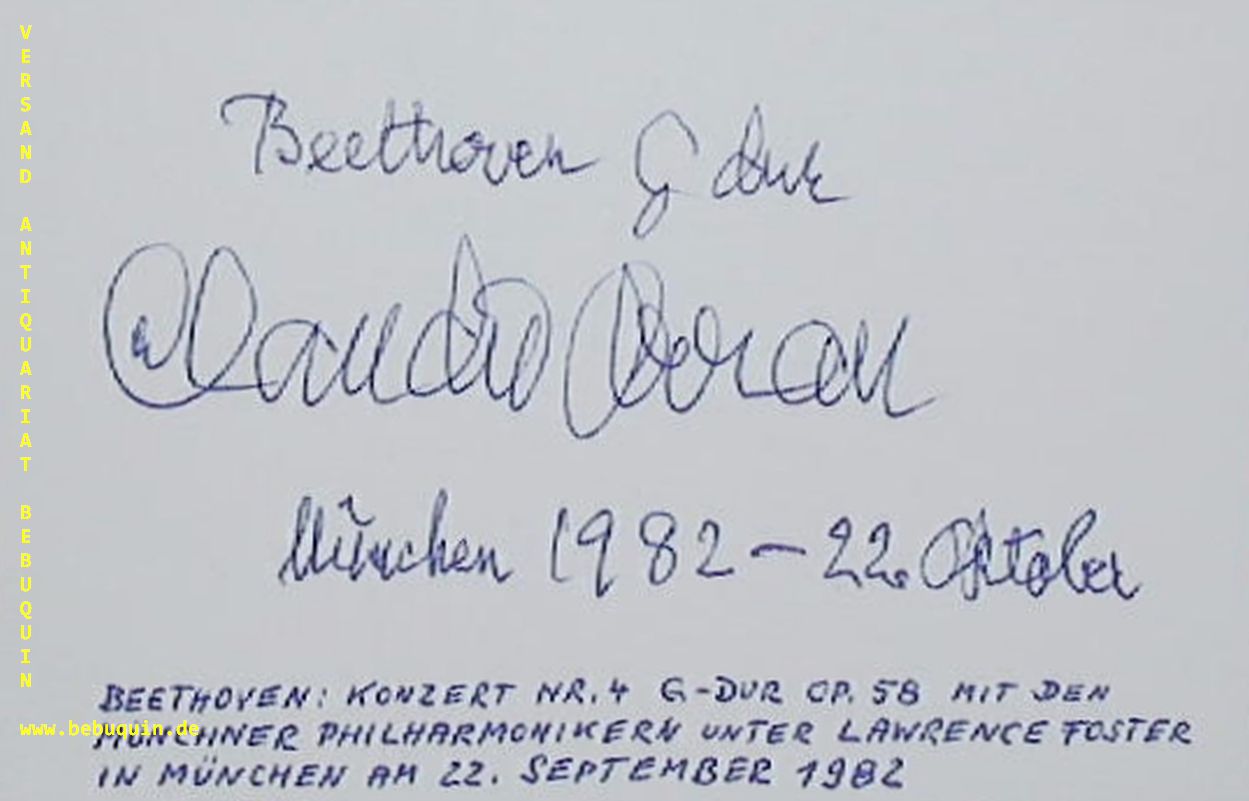 Beethoven G dur
Claudio Arrau
München 1982 – 22. Oktober
BEETHOVEN: KONZERT NR. 4 G-DUR OP. 58 MIT DEN
MÜNCHNER PHILHARMONIKERN UNTER LAWRENCE FOSTER
IN MÜNCHEN AM 22. SEPTEMBER 1982
VERSAND ANTIQUARIAT BEBUQUIN
www.bebuquin.de